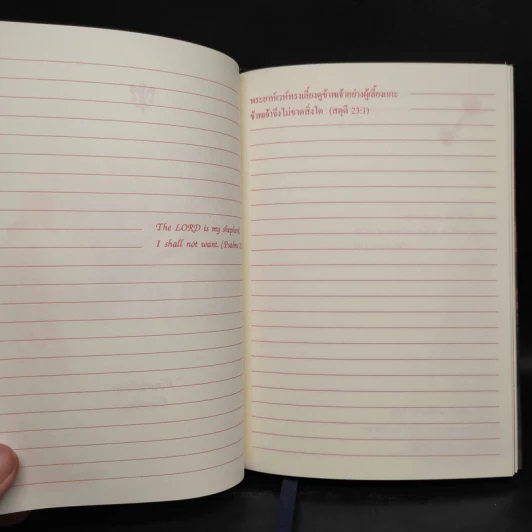 The LORD is my shepherd,
I shall not want. (Psalm
พระยาห์เวห์ทรงเลี้ยงดูข้าพเจ้าอย่างผู้เลี้ยงแกะ
ข้าพเจ้าจึงไม่ขาดสิ่งใด (สดุดี 23:1)